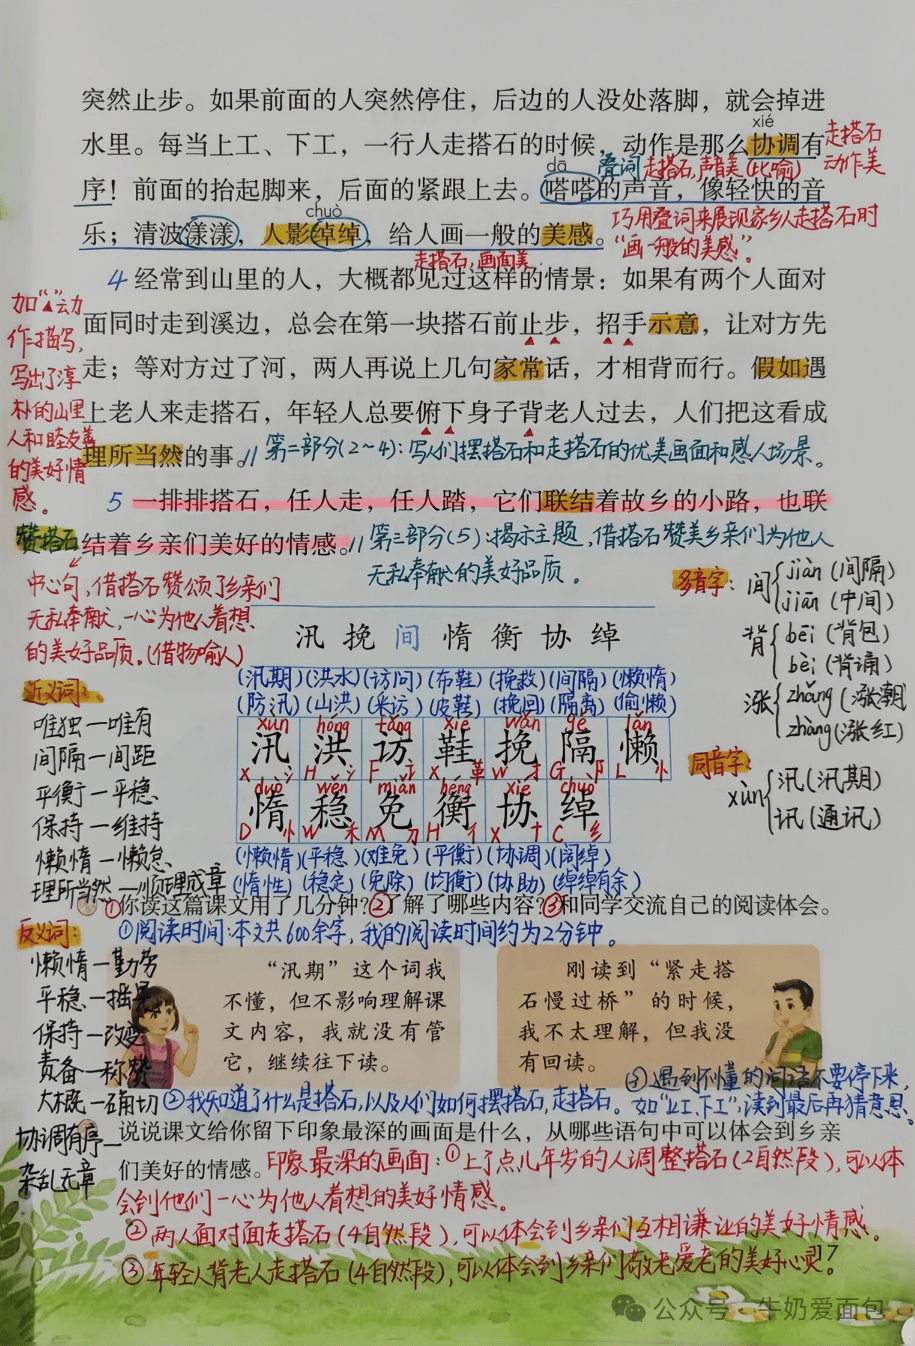 突然止步。如果前面的人突然停住，后边的人没处落脚，就会掉进
xié
水里。每当上工、下工，一行人走搭石的时候，动作是那么协调有
走搭石
动作美
dā
叠词 走搭石，声音美(比喻)
序！前面的抬起脚来，后面的紧跟上去。嗒嗒的声音，像轻快的音
chuò
巧用叠词来展现家乡人走搭石时
“画一般的美感”。
乐；清波漾漾，人影绰绰，给人画一般的美感。
走搭石，画面美
4 经常到山里的人，大概都见过这样的情景：如果有两个人面对
面同时走到溪边，总会在第一块搭石前止步，招手示意，让对方先
走；等对方过了河，两人再说上几句家常话，才相背而行。假如遇
上老人来走搭石，年轻人总要俯下身子背老人过去，人们把这看成
理所当然的事。// 第二部分(2～4)：写人们摆搭石和走搭石的优美画面和感人场景。
如“▲”动
作描写，
写出了淳
朴的山里
人和睦友善
的美好情
感。
5 一排排搭石，任人走，任人踏，它们联结着故乡的小路，也联
赞搭石
结着乡亲们美好的情感。// 第三部分(5)：揭示主题，借搭石赞美乡亲们为他人
无私奉献的美好品质。
中心句，借搭石赞颂了乡亲们
无私奉献，一心为他人着想
的美好品质。(借物喻人)
多音字：间 jiàn(间隔)
jiān(中间)
背 bēi(背包)
bèi(背诵)
涨 zhǎng(涨潮)
zhàng(涨红)
同音字
xùn 汛(汛期)
讯(通讯)
汛 挽 间 惰 衡 协 绰
(汛期)(洪水)(访问)(布鞋)(挽救)(间隔)(懒惰)
(防汛)(山洪)(采访)(皮鞋)(挽回)(隔离)(偷懒)
xùn hóng fǎng xié wǎn gé lǎn
汛 洪 访 鞋 挽 隔 懒
X 氵 H 氵 F 讠 X 革 W 扌 G 阝 L 忄
duò wěn miǎn héng xié chuò
惰 稳 免 衡 协 绰
D 忄 W 禾 M 𠂊 H 彳 X 十 C 纟
(懒惰)(平稳)(难免)(平衡)(协调)(阔绰)
(惰性)(稳定)(免除)(均衡)(协助)(绰绰有余)
近义词：
唯独—唯有
间隔—间距
平衡—平稳
保持—维持
懒惰—懒怠
理所当然—顺理成章
反义词：
懒惰—勤劳
平稳—摇晃
保持—改变
责备—称赞
大概—确切
协调有序—
杂乱无章
①你读这篇课文用了几分钟？②了解了哪些内容？③和同学交流自己的阅读体会。
①阅读时间：本文共600余字，我的阅读时间约为2分钟。
“汛期”这个词我
不懂，但不影响理解课
文内容，我就没有管
它，继续往下读。
刚读到“紧走搭
石慢过桥”的时候，
我不太理解，但我没
有回读。
③遇到不懂的词语不要停下来，
②我知道了什么是搭石，以及人们如何摆搭石，走搭石。如“上工、下工”，读到最后再猜意思。
说说课文给你留下印象最深的画面是什么，从哪些语句中可以体会到乡亲
们美好的情感。印象最深的画面：①上了点儿年岁的人调整搭石(2自然段)，可以体
会到他们一心为他人着想的美好情感。
②两人面对面走搭石(4自然段)，可以体会到乡亲们互相谦让的美好情感。
③年轻人背老人走搭石(4自然段)，可以体会到乡亲们敬老爱老的美好心灵。
17
公众号·牛奶爱面包